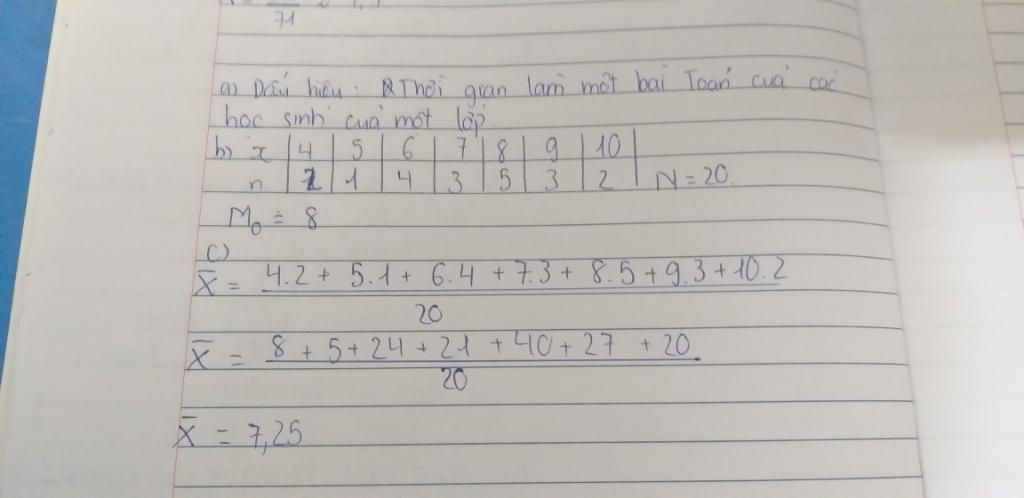 71
a) Dấu hiệu: Thời gian làm một bài Toán của các
học sinh của một lớp.
b) x | 4 | 5 | 6 | 7 | 8 | 9 | 10 |
n | 2 | 1 | 4 | 3 | 5 | 3 | 2 | N = 20.
M₀ = 8
c)
X̄ = 4.2 + 5.1 + 6.4 + 7.3 + 8.5 + 9.3 + 10.2
20
X̄ = 8 + 5 + 24 + 21 + 40 + 27 + 20
20
X̄ = 7,25